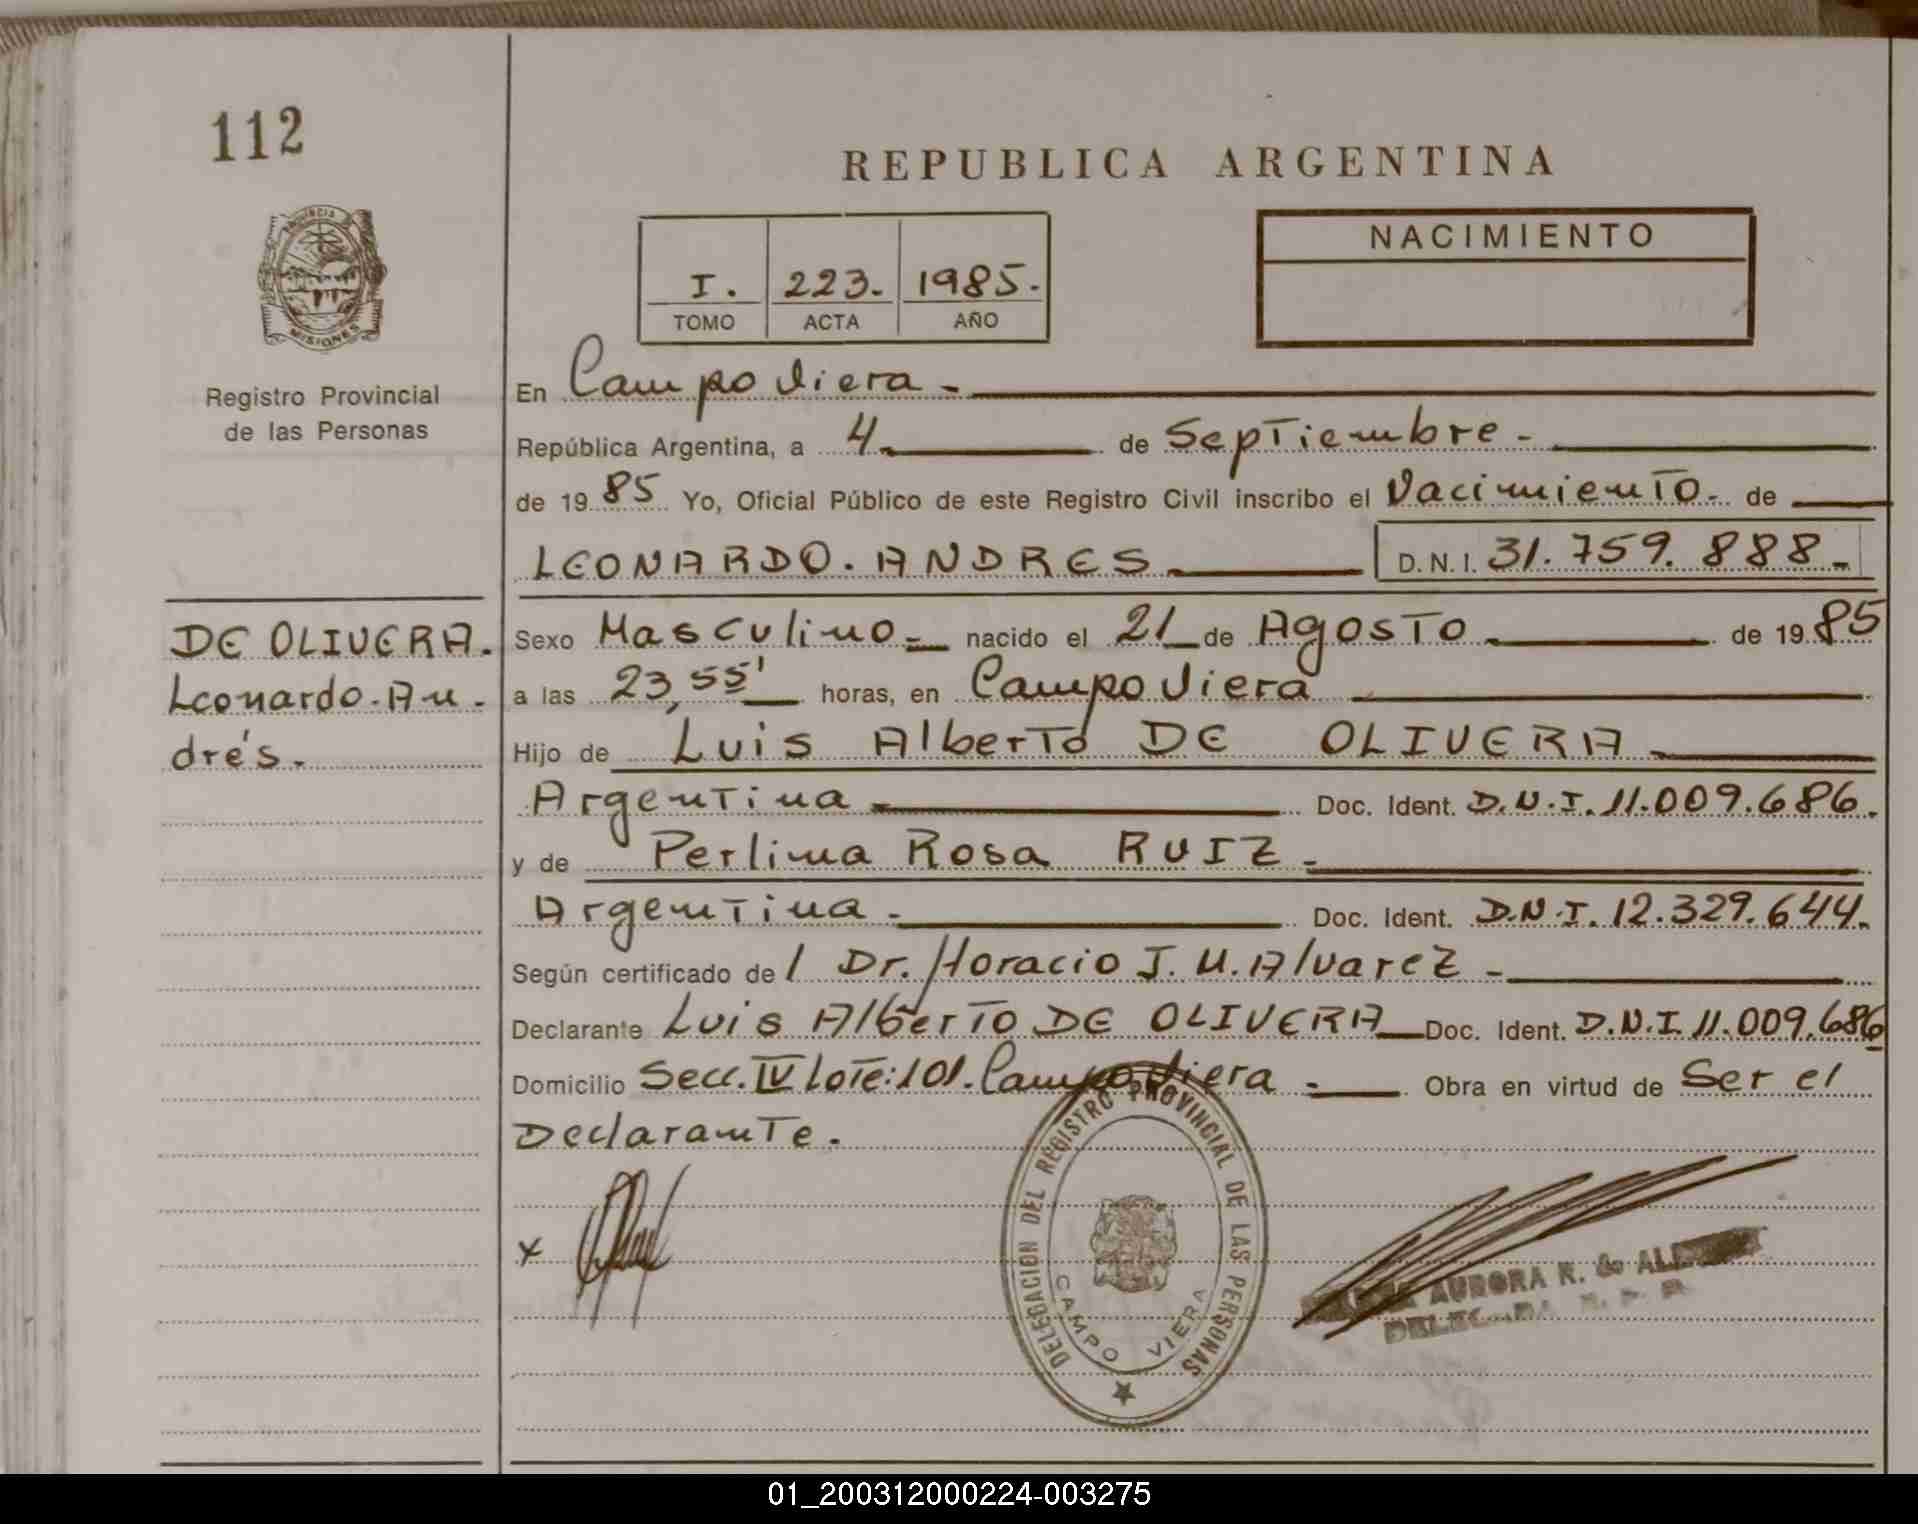 112
REPUBLICA ARGENTINA
PROVINCIA DE
MISIONES
Registro Provincial
de las Personas
I. 223. 1985.
TOMO ACTA AÑO
NACIMIENTO
En Campo Viera -
República Argentina, a 4 de Septiembre -
de 19 85 Yo, Oficial Público de este Registro Civil inscribo el Nacimiento - de
LEONARDO. ANDRES D.N.I. 31.759.888-
DE OLIVERA.
Leonardo. An-
drés.
Sexo Masculino - nacido el 21 de Agosto de 19 85
a las 23,55' horas, en Campo Viera
Hijo de Luis Alberto DE OLIVERA
Argentina Doc. Ident. D.N.I. 11.009.686.
y de Perlina Rosa RUIZ -
Argentina - Doc. Ident. D.N.I. 12.329.644.
Según certificado de / Dr. Horacio J. M. Alvarez -
Declarante Luis Alberto DE OLIVERA Doc. Ident. D.N.I. 11.009.686
Domicilio Secc. IV Lote: 101. Campo Viera - Obra en virtud de Ser el
Declarante.
x
DELEGACION DEL REGISTRO PROVINCIAL DE LAS PERSONAS
CAMPO VIERA
AURORA R. de
DELEGADA R. P. P.
01_200312000224-003275